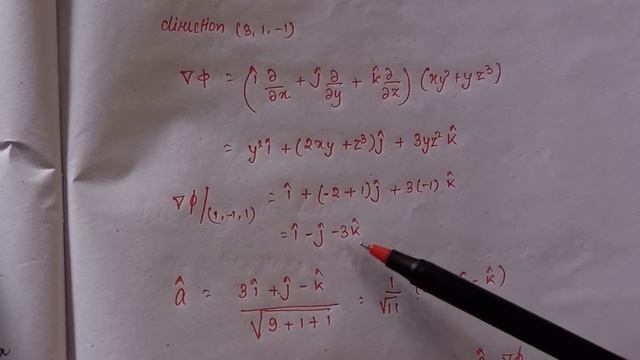 direction (3, 1, -1)
∇φ = (î ∂/∂x + ĵ ∂/∂y + k̂ ∂/∂z) (xy² + yz³)
= y² î + (2xy + z³) ĵ + 3yz² k̂
∇φ/(1, -1, 1) = î + (-2 + 1) ĵ + 3(-1) k̂
= î - ĵ - 3k̂
â = (3î + ĵ - k̂)/√(9 + 1 + 1) = 1/√11 ( - k̂)
∇φ